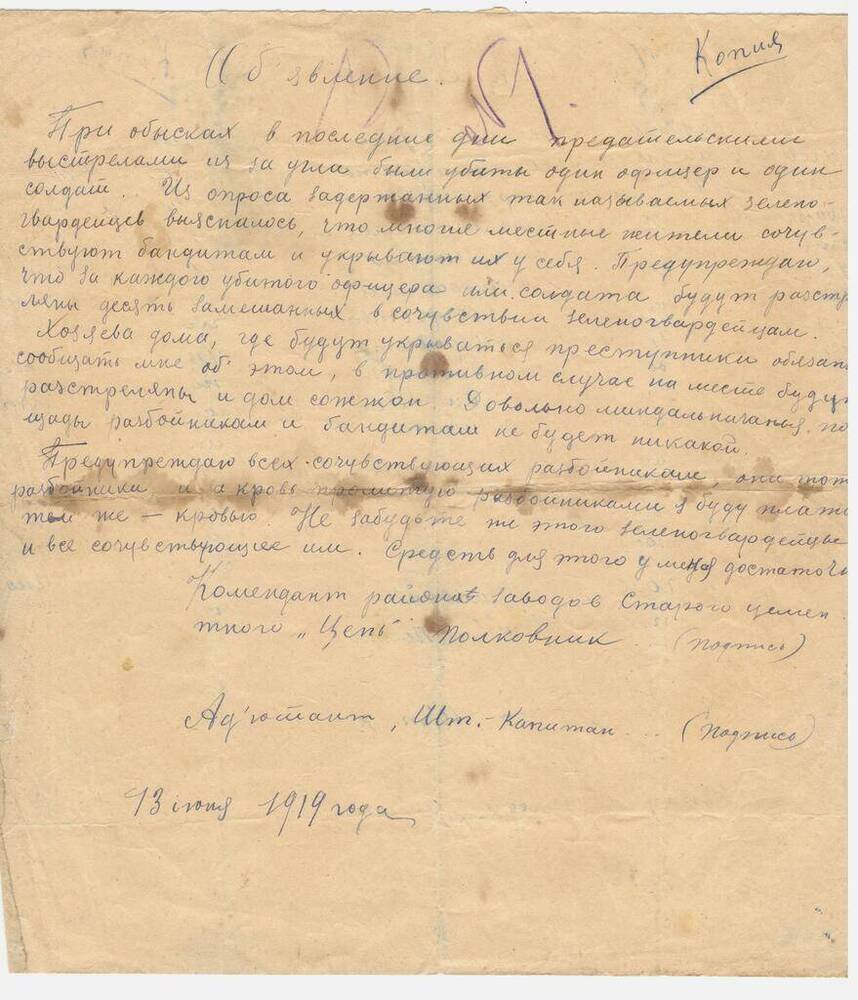 Копия
Об'явление.
При обысках в последние дни предательскими
выстрелами из за угла были убиты один офицер и один
солдат. Из опроса задержанных так называемых зелено-
гвардейцев выяснилось, что многие местные жители сочув-
ствуют бандитам и укрывают их у себя. Предупреждаю,
что за каждого убитого офицера или солдата будут разстре
ляны десять замешанных в сочувствии зеленогвардейцам.
Хозяева дома, где будут укрываться преступники обязан
сообщать мне об этом, в противном случае на месте будут
разстреляны и дом сожжон Довольно миндальничанья. по
щады разбойникам и бандитам не будет никакой.
Предупреждаю всех сочувствующих разбойникам, они тоже
разбойники, и за кровь пролитую разбойниками я буду плати
тем же - кровью. Не забудьте же этого зеленогвардейцы
и все сочувствующее им. Средств для этого у меня достаточн
Комендант района заводов Старого цемен-
тного "Цепь" Полковник (подпись)
Ад'ютант, Шт.-Капитан... (подпись)
13 июня 1919 года